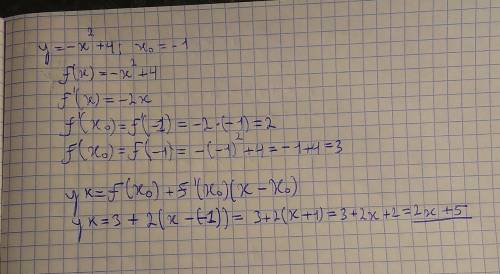 y=-x²+4; x₀=-1
f(x)=-x²+4
f'(x)=-2x
f'(x₀)=f'(-1)=-2·(-1)=2
f(x₀)=f(-1)=-(-1)²+4=-1+4=3
yк=f(x₀)+f'(x₀)(x-x₀)
yк=3+2(x-(-1))=3+2(x+1)=3+2x+2=2x+5